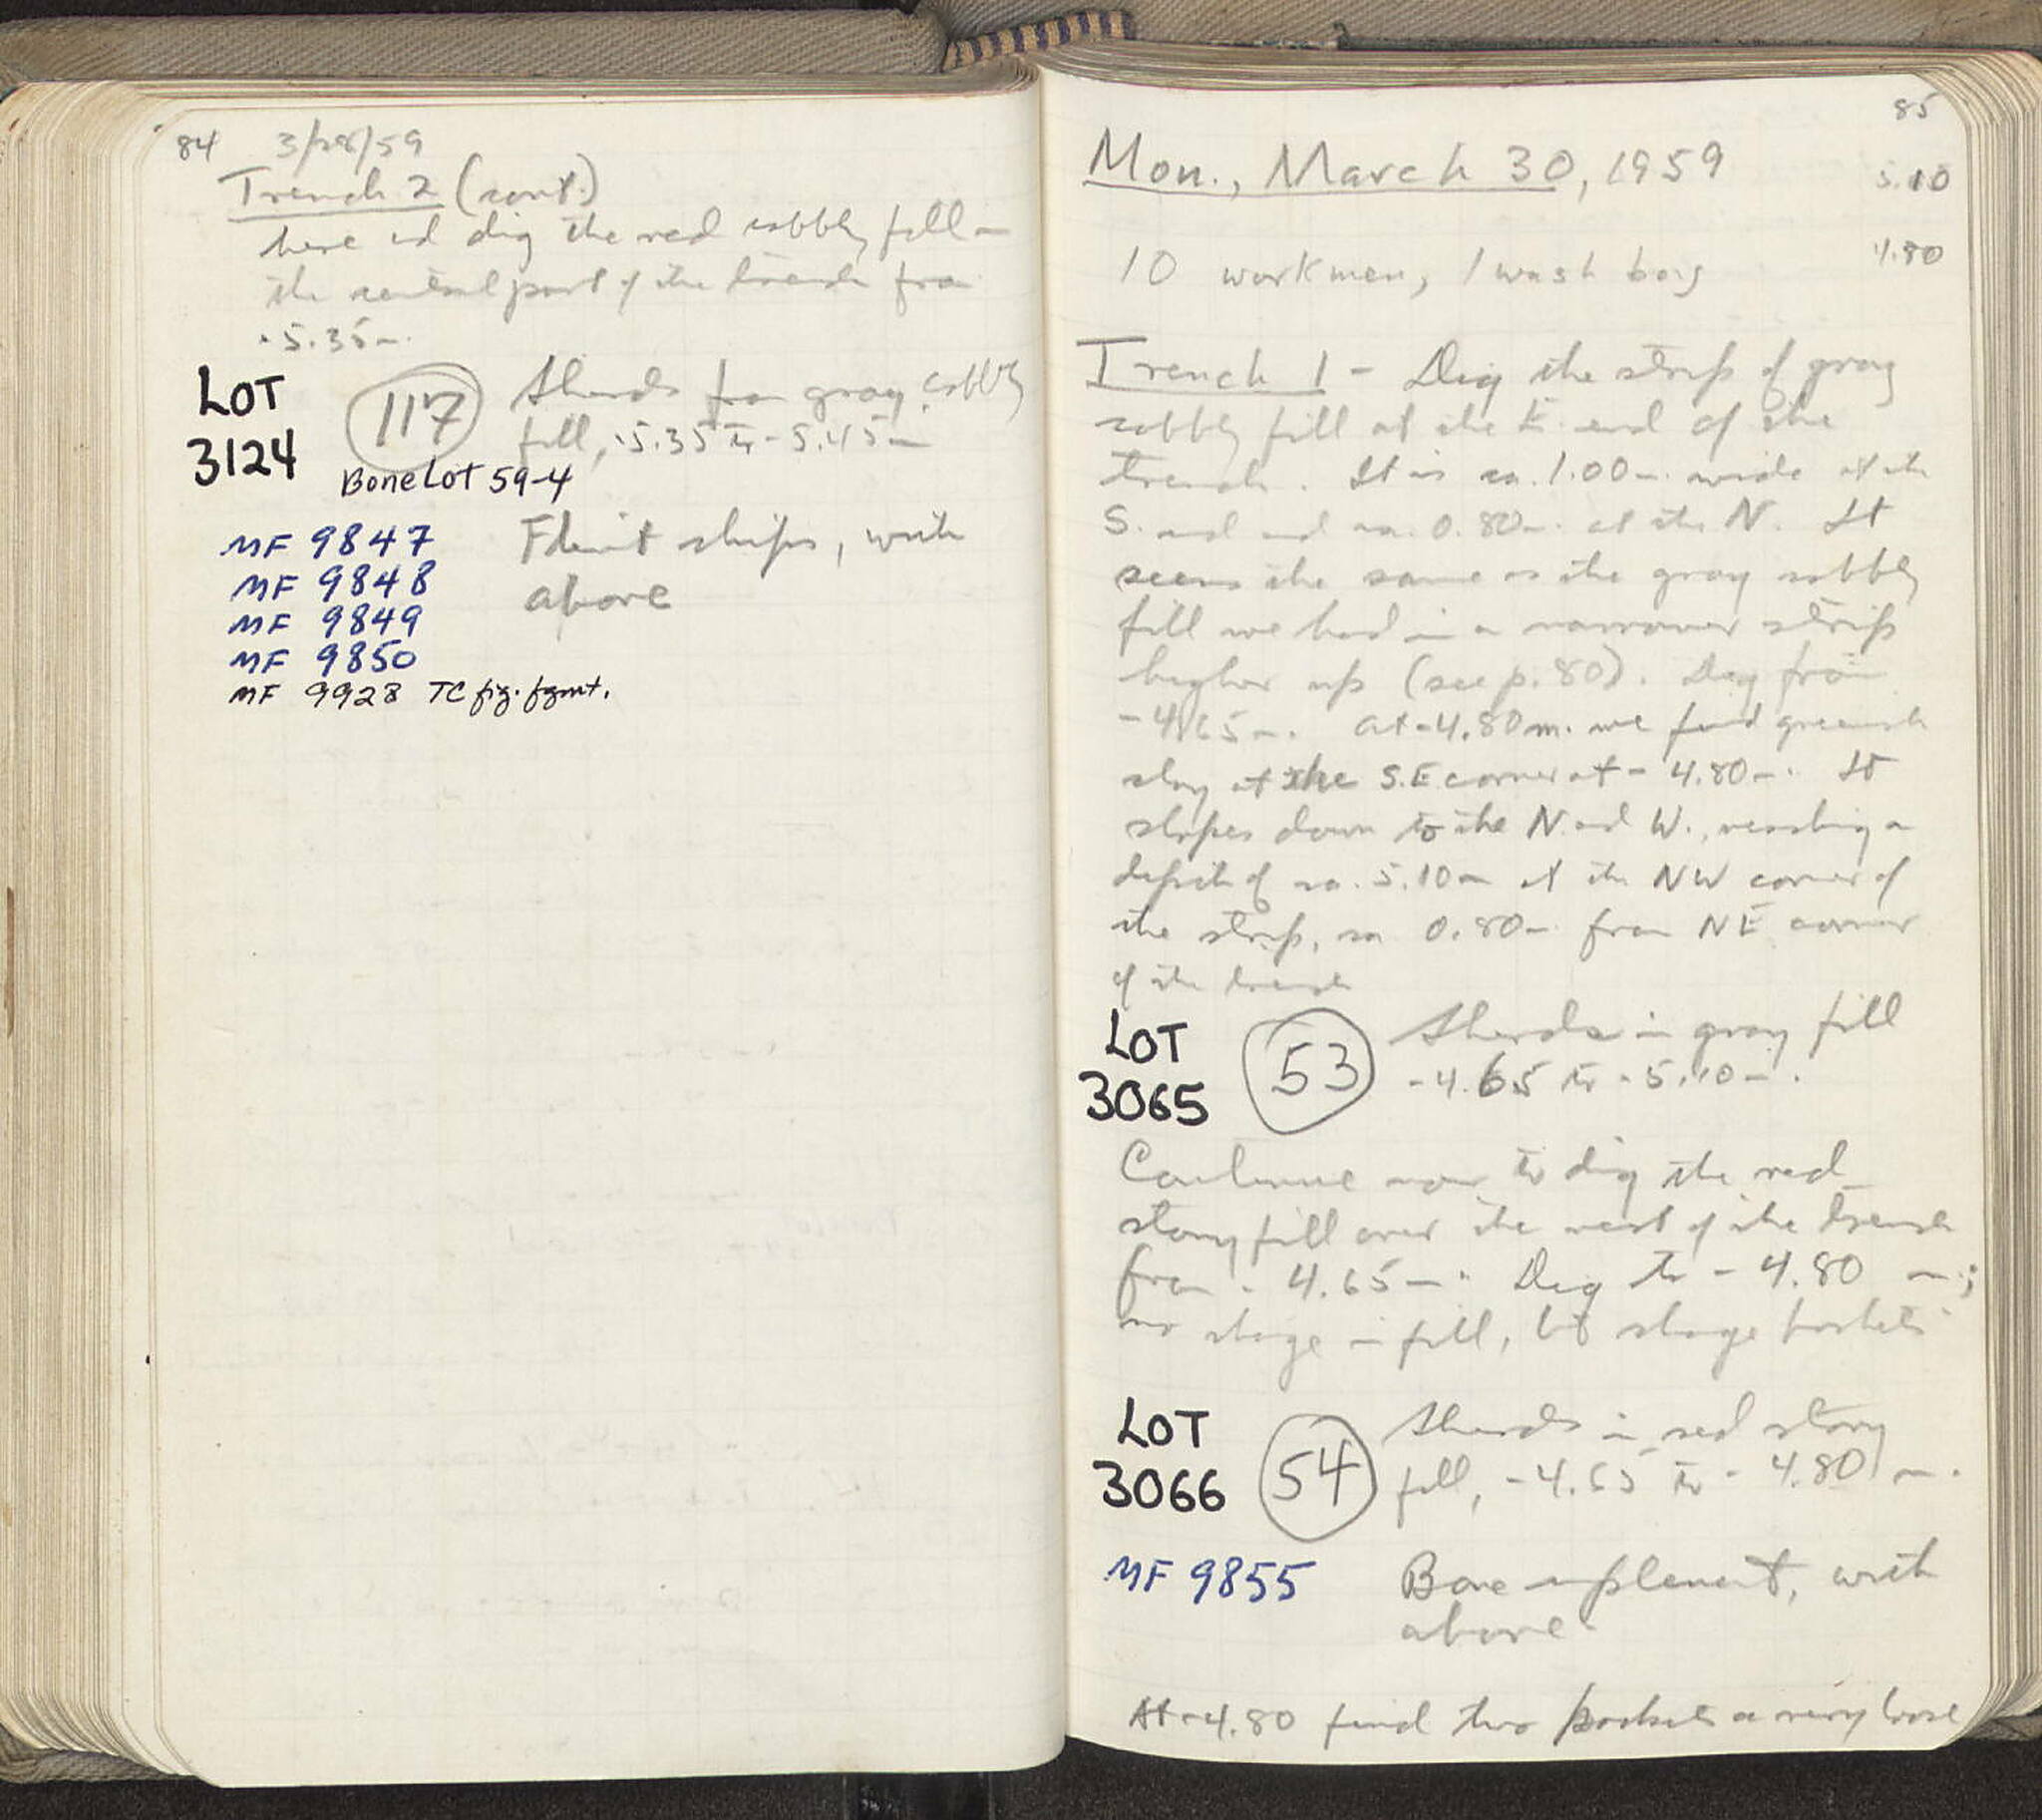 84 3/28/59
Trench 2 (cont.)
here and dig the red cobbly fill in
the central part of the trench from
-5.35m.
LOT
3124
117
Sherds from gray cobbly
fill, -5.35 to -5.45m
Bone Lot 59-4
MF 9847
MF 9848
MF 9849
MF 9850
MF 9928 TC fig. fgmt.
Flint chips, with
above
85
Mon., March 30, 1959
5.10
4.80
10 workmen, 1 wash boy
Trench 1 - Dig the strip of gray
cobbly fill at the E. end of the
trench. It is ca. 1.00m. wide at the
S. end and ca. 0.80m. at the N. It
seems the same as the gray cobbly
fill we had in a narrower strip
higher up (see p. 80). Dig from
-4.65m. At -4.80m. we find greenish
clay at the S.E. corner at -4.80m. It
slopes down to the N and W., reaching a
depth of ca. 5.10m at the NW corner of
the strip, ca 0.80m. from NE corner
of the trench
LOT
3065
53
Sherds in gray fill
-4.65 to -5.10m.
Continue now to dig the red
stony fill over the rest of the trench
from -4.65m. Dig to -4.80 m;
no change in fill, but change baskets
LOT
3066
54
Sherds in red stony
fill, -4.65 to -4.80 m.
MF 9855
Bone implement, with
above
At -4.80 find two pockets a very loose